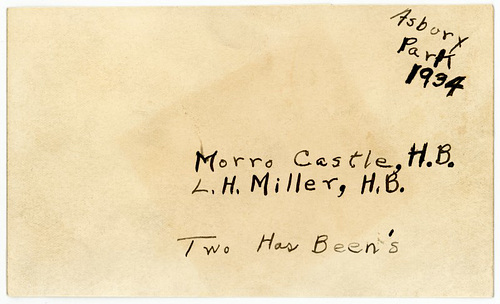 Asbury
Park
1934
Morro Castle, H.B.
L.H. Miller, H.B.
Two Has Been's